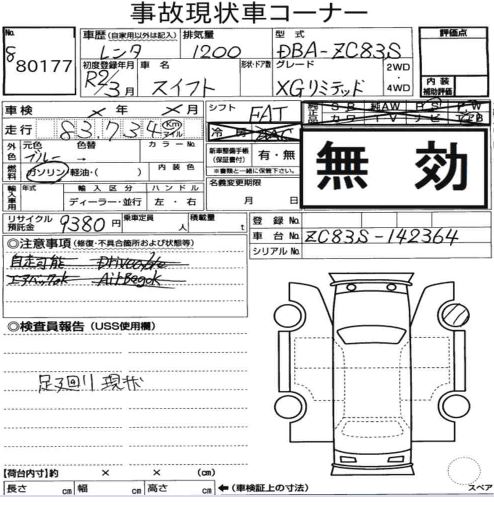 事故現状車コーナー
No. 80177
車歴(自家用以外は記入) 排気量 型式 評価点
レンタ 1200 DBA-ZC83S
初度登録年月 車名 形状・ドア数 グレード 2WD・4WD
R2/3月 スイフト XGリミテッド
内装補助評価
車検 × 年 × 月 シフト FAT
走行 83,734 Km マイル 冷房
外色 元色 色替 カラーNo.
ブルー →
新車整備手帳(保証書付) 有・無
※書類と一緒に保管下さい。
燃料 ガソリン 軽油・( ) 内装色
名義変更期限
月 日
無効
輸入車用 年式 輸入区分 ハンドル
ディーラー・並行 左・右
リサイクル預託金 9380円 乗車定員 人 積載量 t
登録No.
車台No. ZC83S-142364
シリアルNo.
◎注意事項(修復・不具合箇所および状態等)
自走可能
エアバックok AirBagok
◎検査員報告(USS使用欄)
足廻り現状
【荷台内寸】約 × × (cm)
長さ cm 幅 cm 高さ cm ←(車検証上の寸法)
スペア